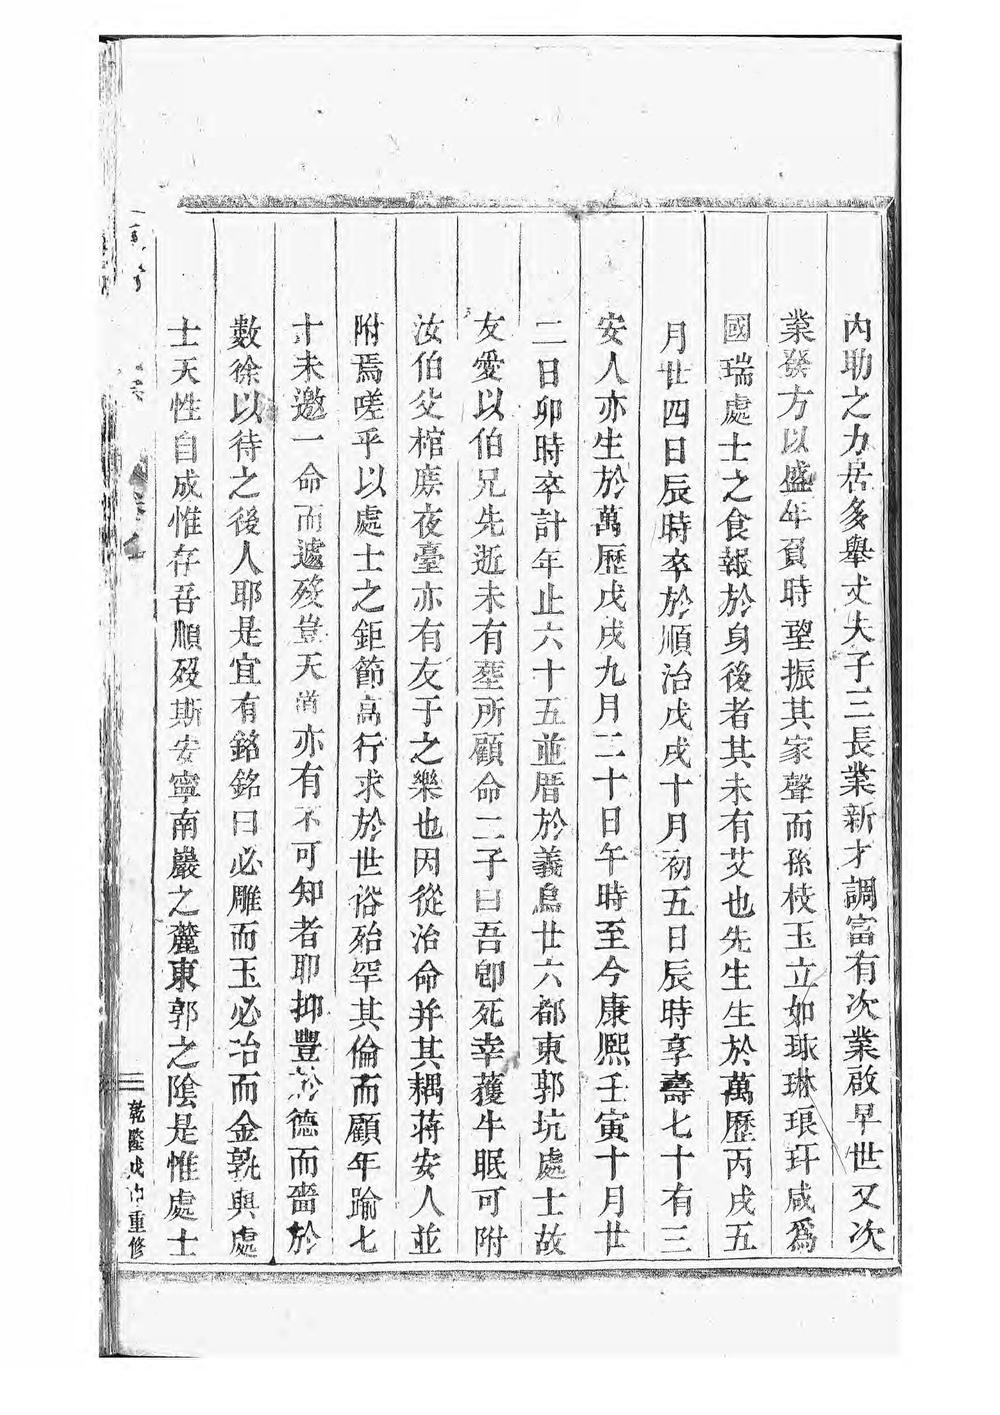 內助之力居多舉丈夫子三長業新才調富有次業啟早世又次
業發方以盛年負時望振其家聲而孫枝玉立如琢琳琅玕咸為
國瑞處士之食報於身後者其未有艾也先生生於萬歷丙戌五
月廿四日辰時卒於順治戊戌十月初五日辰時享壽七十有三
安人亦生於萬歷戊戌九月二十日午時至今康熙壬寅十月廿
二日卯時卒計年止六十五並厝於義烏廿六都東郭坑處士故
友愛以伯兄先逝未有塟所顧命二子曰吾卽死幸蒦牛眠可附
汝伯父棺庶夜臺亦有友于之樂也因從治命并其耦蔣安人並
附焉嗟乎以處士之鉅節高行求於世俗殆罕其倫而顧年踰七
十未邀一命而遽歿豈天道亦有不可知者耶抑豐於德而嗇於
數徐以待之後人耶是宜有銘銘曰必雕而玉必冶而金孰與處
士天性自成惟存吾順歿斯安寧南巖之麓東郭之陰是惟處士
乾隆戊 重修